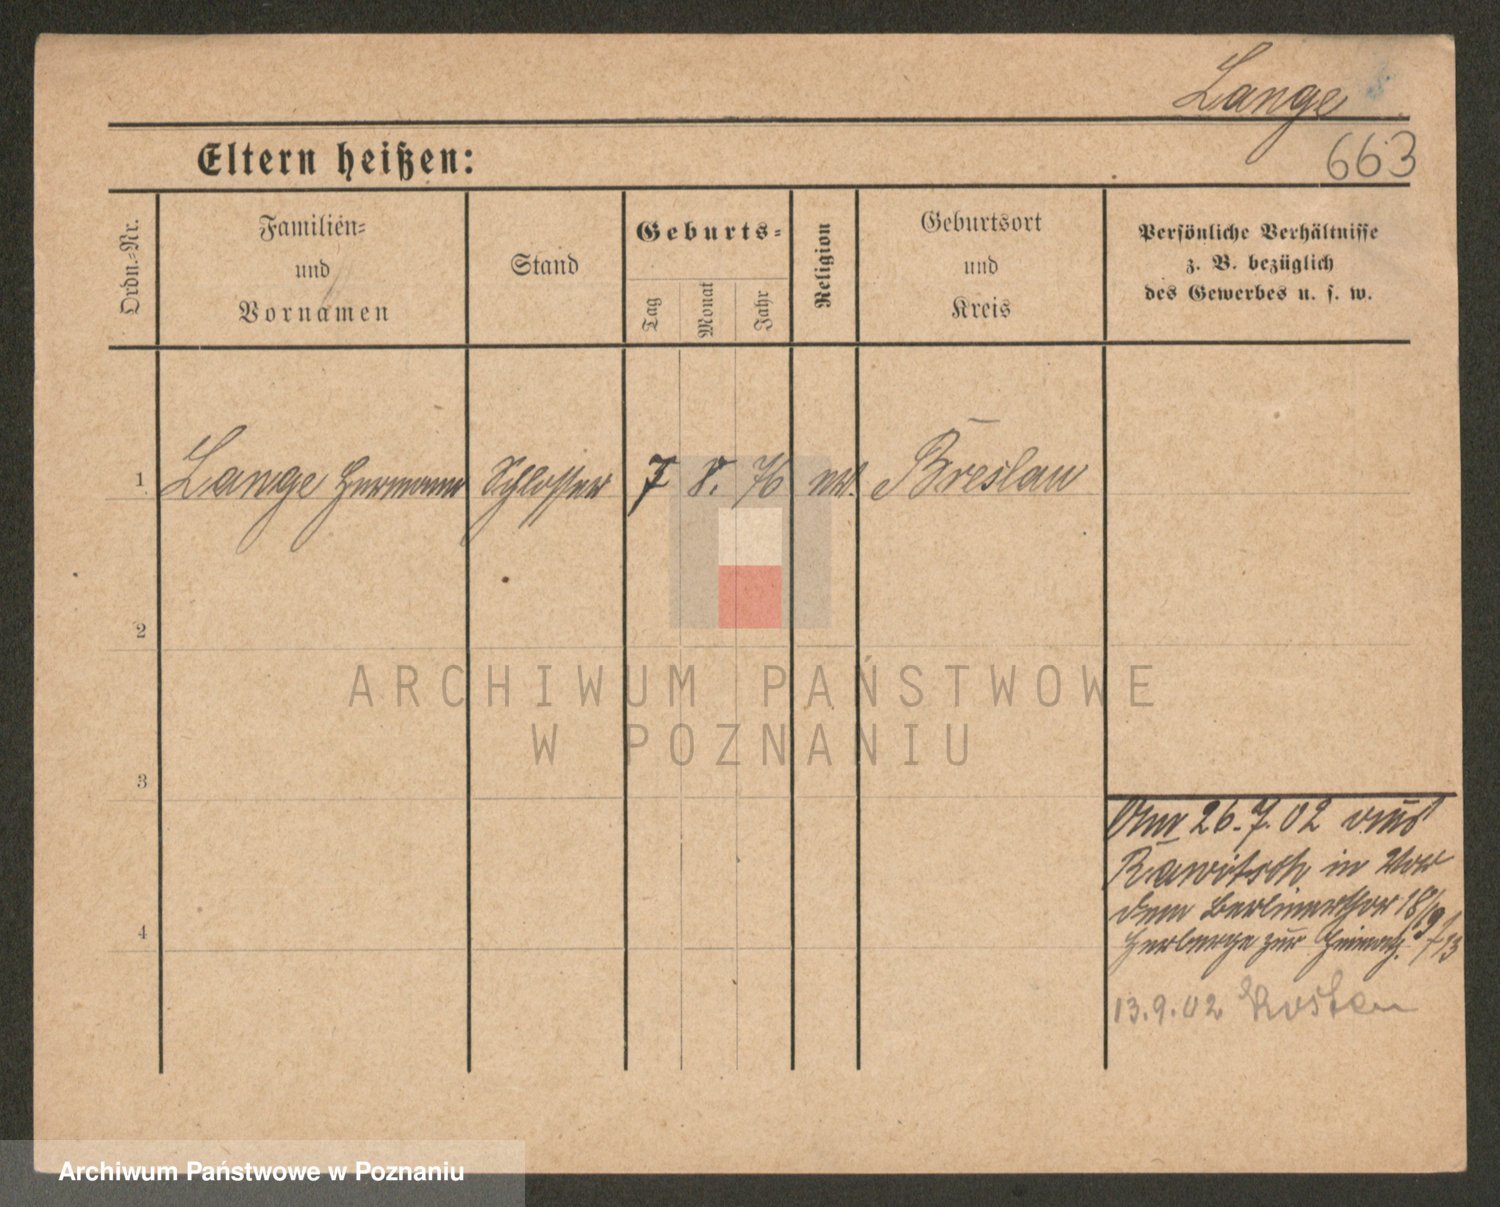 Lange
Eltern heißen:
663
Ordn.-Nr.
Familien-
und
Vornamen
Stand
Geburts-
Tag
Monat
Jahr
Religion
Geburtsort
und
Kreis
Persönliche Verhältnisse
z. B. bezüglich
des Gewerbes u. s. w.
1 Lange Hermann Schlosser 7 8. 76 ev. Breslau
2
ARCHIWUM PAŃSTWOWE
W POZNANIU
3
Am 26.7.02 aus
Rawitsch in Vor
dem Berlinerthor 18
Herberge zur Heimath.
4
13.9.02 Kosten
Archiwum Państwowe w Poznaniu